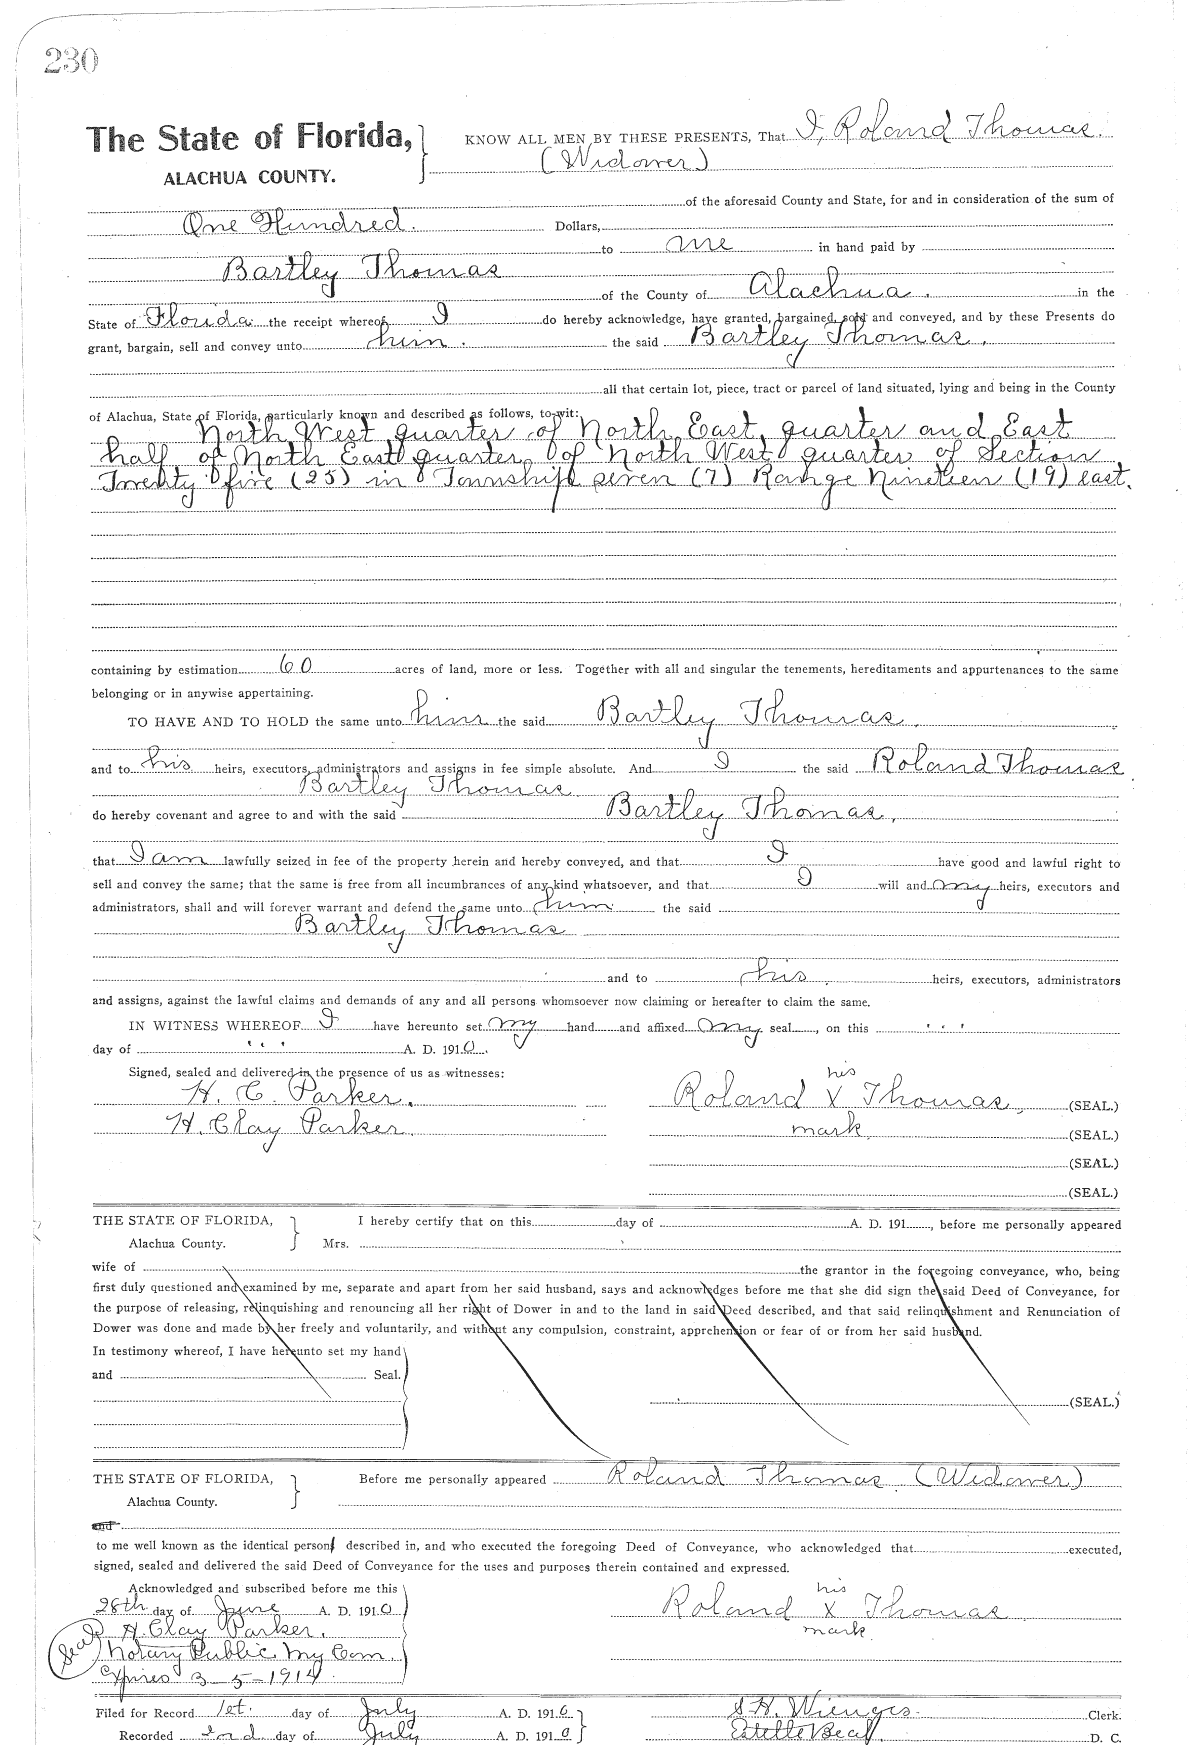 230
The State of Florida, KNOW ALL MEN BY THESE PRESENTS, That I, Roland Thomas.
ALACHUA COUNTY. (Widower)
of the aforesaid County and State, for and in consideration of the sum of
One Hundred. Dollars,
to me in hand paid by
Bartley Thomas
of the County of Alachua. in the
State of Florida the receipt whereof I do hereby acknowledge, have granted, bargained, sold and conveyed, and by these Presents do
grant, bargain, sell and convey unto him. the said Bartley Thomas.
all that certain lot, piece, tract or parcel of land situated, lying and being in the County
of Alachua, State of Florida, particularly known and described as follows, to-wit:
North West quarter of North East quarter and East
half of North East quarter of North West quarter of Section
Twenty five (25) in Township seven (7) Range Nineteen (19) east.
containing by estimation 60 acres of land, more or less. Together with all and singular the tenements, hereditaments and appurtenances to the same
belonging or in anywise appertaining.
TO HAVE AND TO HOLD the same unto him the said Bartley Thomas.
and to his heirs, executors, administrators and assigns in fee simple absolute. And I the said Roland Thomas
Bartley Thomas
do hereby covenant and agree to and with the said Bartley Thomas,
that I am lawfully seized in fee of the property herein and hereby conveyed, and that I have good and lawful right to
sell and convey the same; that the same is free from all incumbrances of any kind whatsoever, and that I will and my heirs, executors and
administrators, shall and will forever warrant and defend the same unto him the said
Bartley Thomas
and to his heirs, executors, administrators
and assigns, against the lawful claims and demands of any and all persons whomsoever now claiming or hereafter to claim the same.
IN WITNESS WHEREOF I have hereunto set my hand and affixed my seal, on this " "
day of " " A. D. 1910.
Signed, sealed and delivered in the presence of us as witnesses: his
H. C. Parker. Roland X Thomas, (SEAL.)
H. Clay Parker. mark (SEAL.)
(SEAL.)
(SEAL.)
THE STATE OF FLORIDA, I hereby certify that on this day of A. D. 191, before me personally appeared
Alachua County. Mrs.
wife of the grantor in the foregoing conveyance, who, being
first duly questioned and examined by me, separate and apart from her said husband, says and acknowledges before me that she did sign the said Deed of Conveyance, for
the purpose of releasing, relinquishing and renouncing all her right of Dower in and to the land in said Deed described, and that said relinquishment and Renunciation of
Dower was done and made by her freely and voluntarily, and without any compulsion, constraint, apprehension or fear of or from her said husband.
In testimony whereof, I have hereunto set my hand
and Seal.
(SEAL.)
THE STATE OF FLORIDA, Before me personally appeared Roland Thomas (Widower)
Alachua County.
and
to me well known as the identical person described in, and who executed the foregoing Deed of Conveyance, who acknowledged that executed,
signed, sealed and delivered the said Deed of Conveyance for the uses and purposes therein contained and expressed.
Acknowledged and subscribed before me this his
28th day of June A. D. 1910 Roland X Thomas
(Seal) H. Clay Parker. mark
Notary Public. My Com.
Expires 3-5-1914
Filed for Record 1st. day of July A. D. 1910 S. H. Wienges. Clerk.
Recorded 2nd day of July A. D. 1910 Estelle Beal D. C.